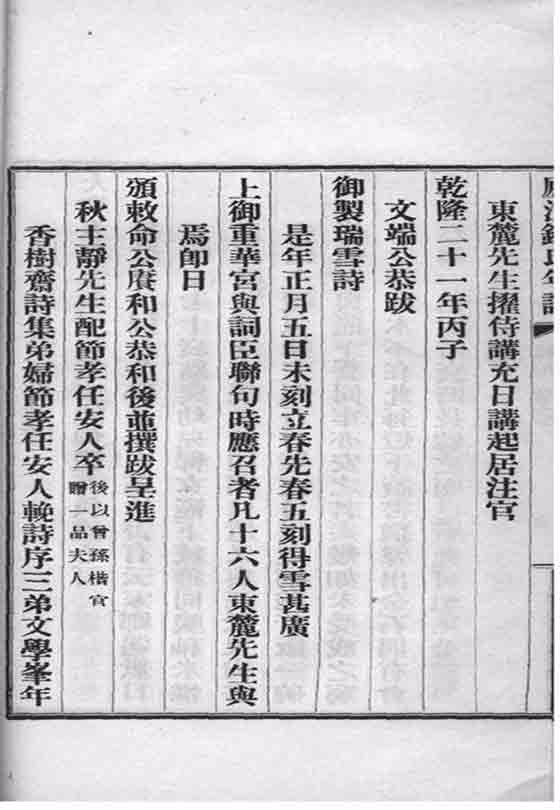 錢氏年譜
東麓先生擢侍講充日講起居注官
乾隆二十一年丙子
文端公恭跋
御製瑞雪詩
是年正月五日未刻立春先春五刻得雪甚廣
上御重華宮與詞臣聯句時應召者凡十六人東麓先生與
焉卽日
頒敕命公賡和公恭和後並撰跋呈進
秋主靜先生配節孝任安人卒後以曾孫楷官
贈一品夫人
香樹齋詩集弟婦節孝任安人輓詩序三弟文學峯年